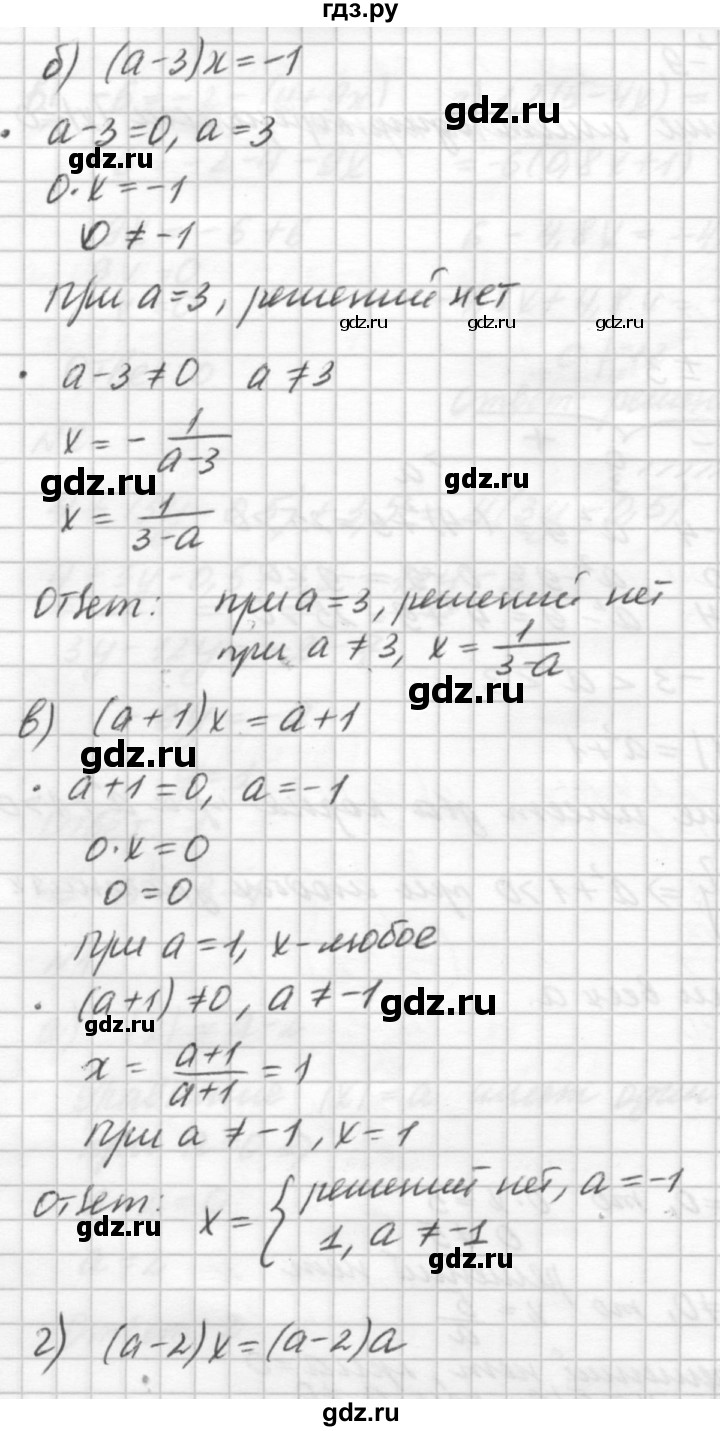 гдз.ру
б) (a-3)x = -1
gdz.ru
• a-3=0, a=3
gdz.ru
0·x = -1
0 ≠ -1
при a=3, решений нет
gdz.ru gdz.ru gdz.ru
• a-3≠0 a≠3
x = - 1/(a-3)
gdz.ru gdz.ru
x = 1/(3-a)
Ответ: при a=3, решений нет
при a ≠ 3, x = 1/(3-a)
gdz.ru
в) (a+1)x = a+1
gdz.ru
• a+1=0, a=-1
0·x=0
0=0
при a=1, x-любое
• (a+1)≠0, a≠-1
gdz.ru
gdz.ru
x = (a+1)/(a+1) = 1
при a ≠ -1, x=1
Ответ: x = { решений нет, a=-1
1, a ≠ -1
gdz.ru
gdz.ru
г) (a-2)x=(a-2)a
gdz.ru